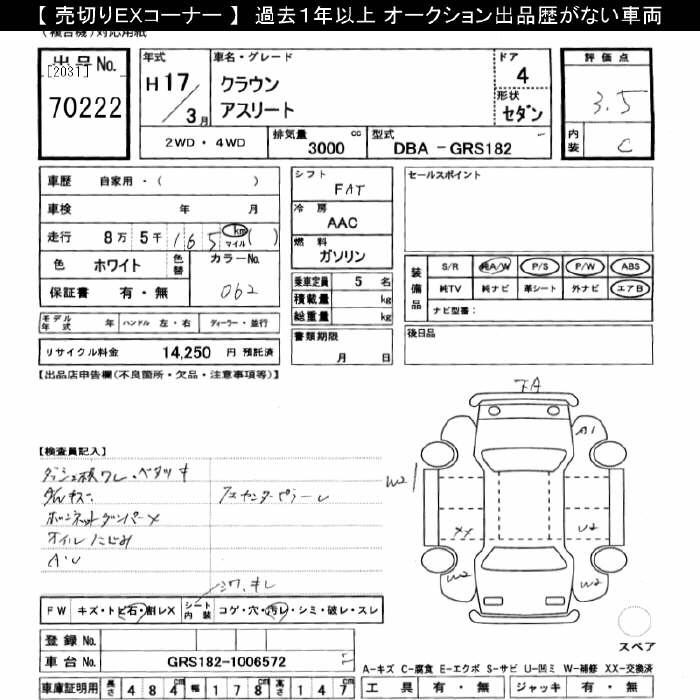 【 売切りEXコーナー 】 過去1年以上 オークション出品歴がない車両
出品No.
[2031]
70222
年式
H17/3月
車名・グレード
クラウン
アスリート
ドア
4
形状
セダン
評価点
3.5
内装
C
2WD・4WD
排気量
3000 cc
型式
DBA -GRS182
車歴 自家用・( )
車検 年 月
走行 8万 5千 165 km マイル ( )
色 ホワイト 色替 カラーNo.
保証書 有・無 062
シフト
FAT
冷房
AAC
燃料
ガソリン
乗車定員 5 名
積載量 kg
総重量 kg
セールスポイント
装備品
S/R 純A/W P/S P/W ABS
純TV 純ナビ 革シート 外ナビ エアB
ナビ型番:
モデル年式 年 ハンドル 左・右 ディーラー・並行
リサイクル料金 14,250 円 預託済
書類期限
月 日
後日品
【出品店申告欄(不良箇所・欠品・注意事項等)】
【検査員記入】
ダッシュ板ワレ・ベタツキ
ボンネットダンパーX
オイルにじみ
A・U
A1
W2
XX
U2
W2
W2
FW キズ・トビ石・割レX シート内装 コゲ・穴・汚レ・シミ・破レ・スレ
登録 No.
車台 No. GRS182-1006572
車庫証明用 長さ 484cm 幅 178cm 高さ 147cm
スペア
A-キズ C-腐食 E-エクボ S-サビ U-凹ミ W-補修 XX-交換済
工具 有・無 ジャッキ 有・無